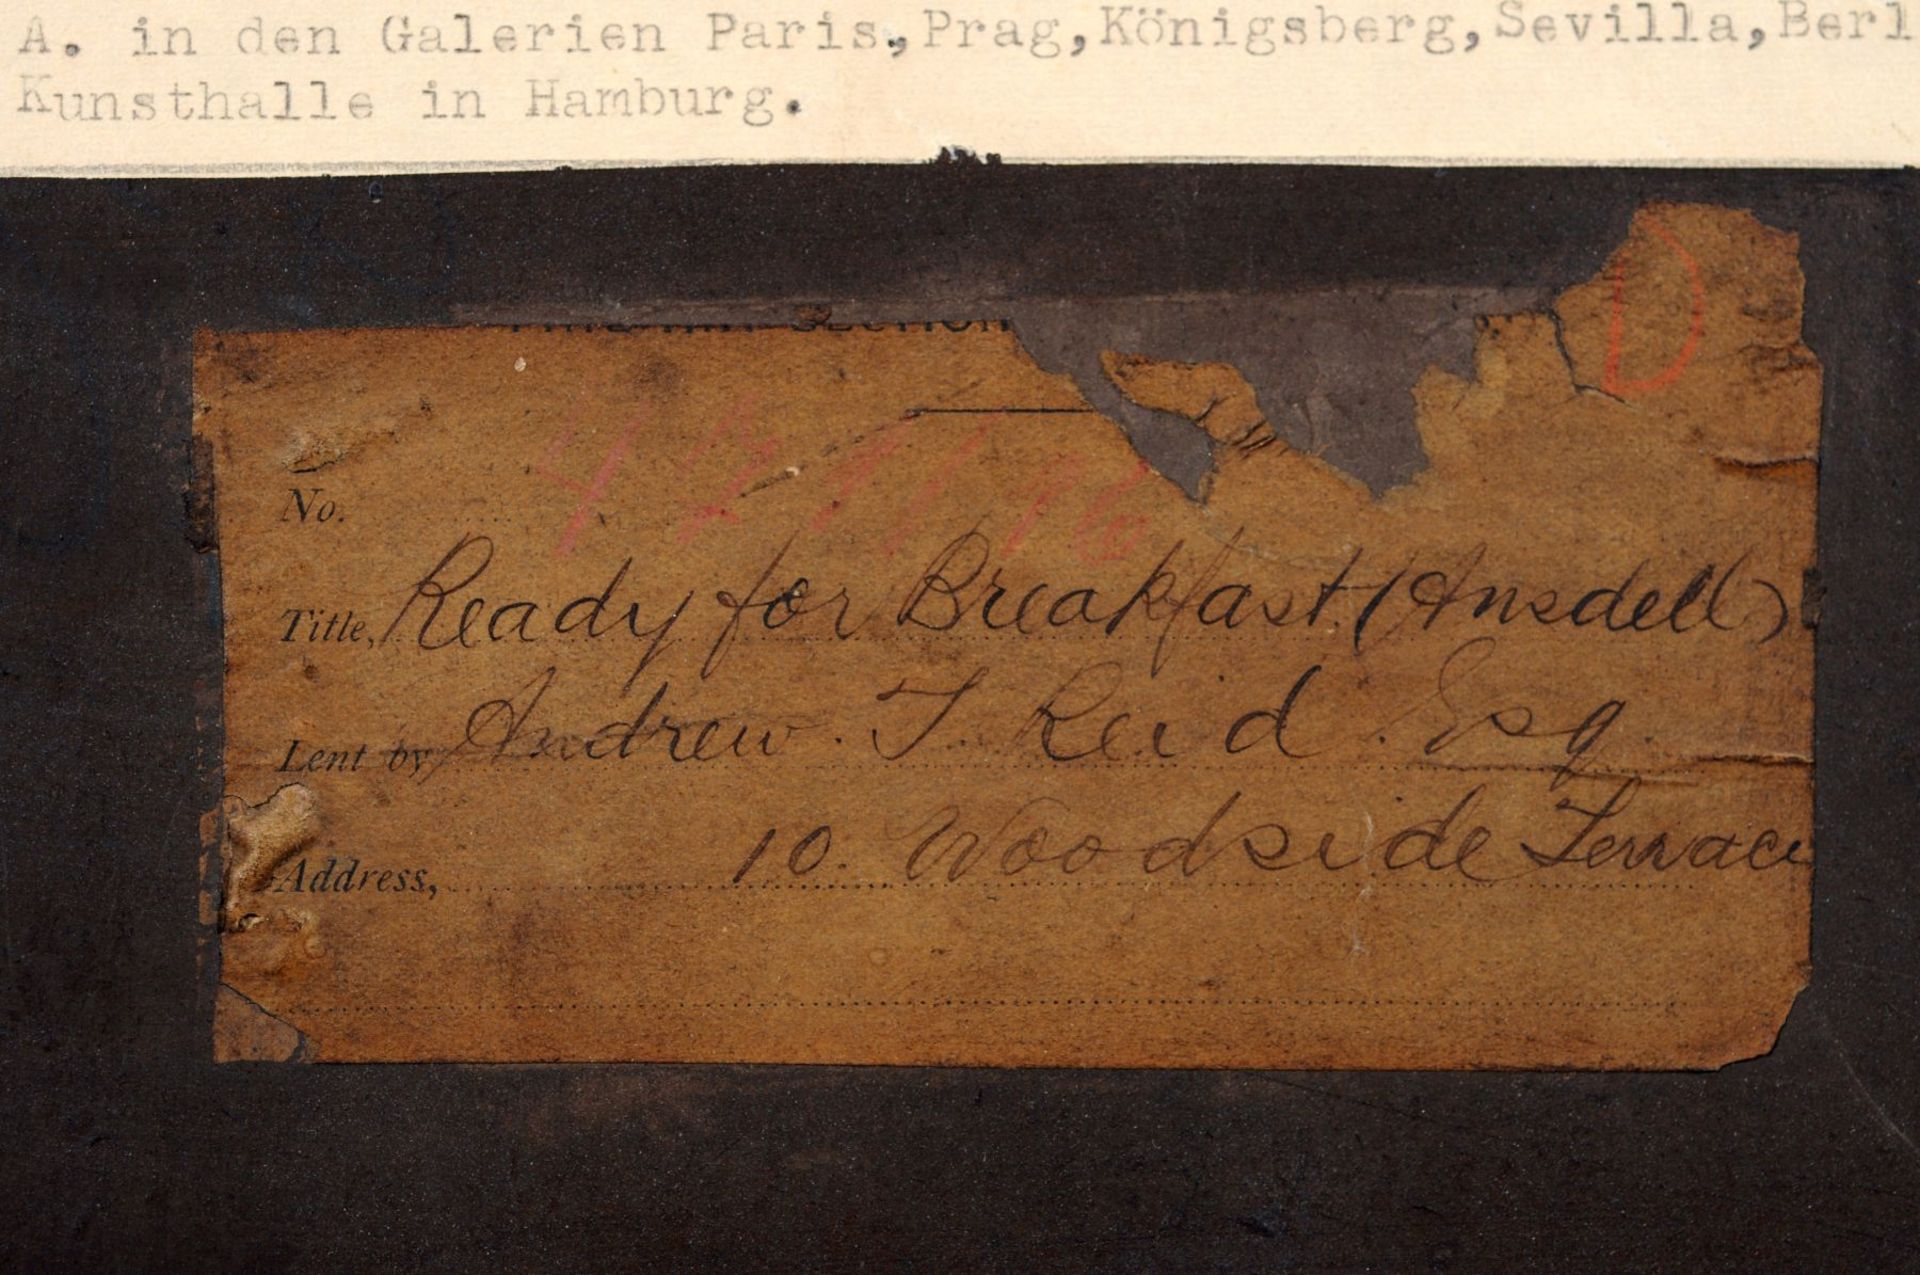 A. in den Galerien Paris,Prag,Königsberg,Sevilla,Berl
Kunsthalle in Hamburg.
SECTION
D
No.
Title, Ready for Breakfast (Ansdell)
Lent by Andrew. T Reid. Esq.
Address, 10. Woodside Terrace